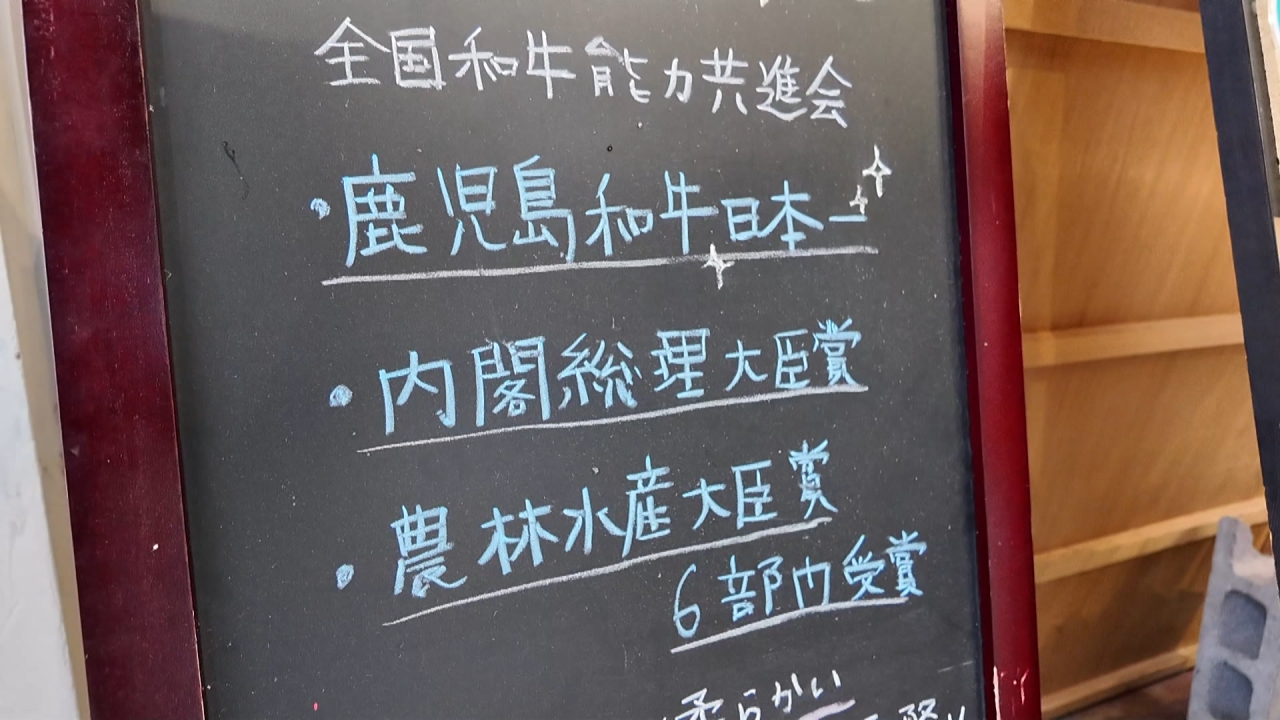 全国和牛能力共進会
・鹿児島和牛日本一
・内閣総理大臣賞
・農林水産大臣賞
6部内受賞
柔らかい